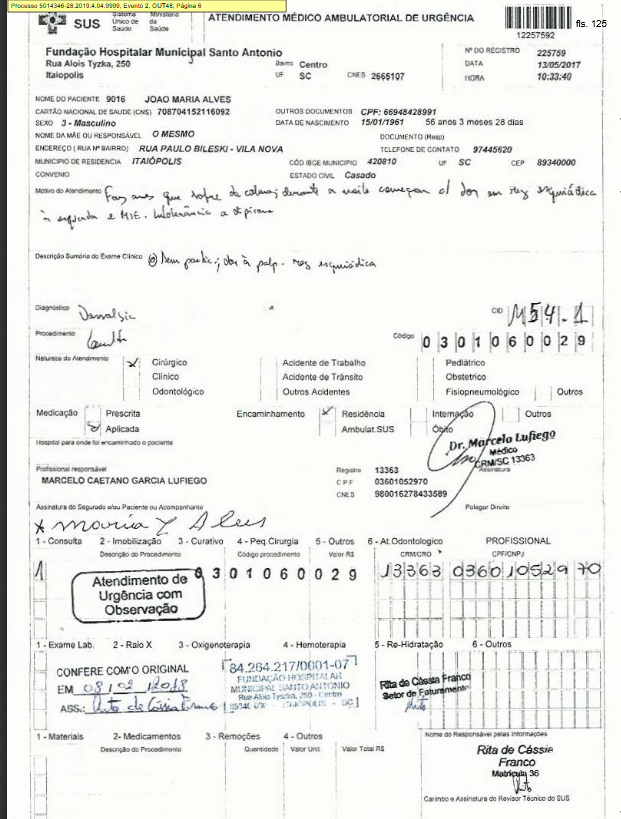 Processo 5014346-28.2019.4.04.9999, Evento 2, OUT48, Página 6
SUS Sistema Único de Saúde Ministério da Saúde
ATENDIMENTO MÉDICO AMBULATORIAL DE URGÊNCIA
12257592
fls. 125
Fundação Hospitalar Municipal Santo Antonio
Rua Alois Tyzka, 250 Bairro Centro
Itaiopolis UF SC CNES 2665107
Nº DO REGISTRO 225759
DATA 13/05/2017
HORA 10:33:40
NOME DO PACIENTE 9016 JOAO MARIA ALVES
CARTÃO NACIONAL DE SAÚDE (CNS) 708704152116092 OUTROS DOCUMENTOS CPF: 66948428991
SEXO 3 - Masculino DATA DE NASCIMENTO 15/01/1961 56 anos 3 meses 28 dias
NOME DA MÃE OU RESPONSÁVEL O MESMO DOCUMENTO (Resp)
ENDEREÇO ( RUA Nº BAIRRO) RUA PAULO BILESKI - VILA NOVA TELEFONE DE CONTATO 97445620
MUNICIPIO DE RESIDENCIA ITAIÓPOLIS CÓD IBGE MUNICIPIO 420810 UF SC CEP 89340000
CONVENIO ESTADO CIVIL Casado
Motivo do Atendimento Faz anos que sofre da coluna; durante a noite começou c/ dor em reg esquiádica
à esquerda e MIE. Intolerância a dipirona
Descrição Sumária do Exame Clínico dor à palp. reg esquiádica
Diagnóstico CID M54.1
Procedimento Código 0301060029
Natureza do Atendimento Cirúrgico Acidente de Trabalho Pediátrico
Clínico Acidente de Trânsito Obstetrico
Odontológico Outros Acidentes Fisiopneumológico Outros
Medicação Prescrita Encaminhamento Residência Internação Outros
Aplicada Ambulat.SUS Óbito
Hospital para onde foi encaminhado o paciente
Dr. Marcelo Lufiego
Médico
CRM/SC 13363
Assinatura
Profissional responsável Registro 13363
MARCELO CAETANO GARCIA LUFIEGO C P F 03601052970
CNES 980016278433589
Assinatura do Segurado e/ou Paciente ou Acompanhante Polegar Direito
Maria Z Alves
1 - Consulta 2 - Imobilização 3 - Curativo 4 - Peq.Cirurgia 5 - Outros 6 - At.Odontologico PROFISSIONAL
Descrição do Procedimento Código procedimento Valor R$ CRM/CRO CPF/CNPJ
1 0301060029 13363 03601052970
Atendimento de
Urgência com
Observação
1 - Exame Lab. 2 - Raio X 3 - Oxigenoterapia 4 - Hemoterapia 5 - Re-Hidratação 6 - Outros
CONFERE COM O ORIGINAL
EM 08/02/2018
ASS.: Rita de Cássia Franco
84.264.217/0001-07
FUNDAÇÃO HOSPITALAR
MUNICIPAL SANTO ANTONIO
Rua Alois Tyszka, 250 - Centro
ITAIÓPOLIS - SC
Rita de Cássia Franco
Setor de Faturamento
1 - Materiais 2- Medicamentos 3 - Remoções 4 - Outros
Descrição do Procedimento Quantidade Valor Unit Valor Total R$
Nome do Responsável pelas Informações
Rita de Cássia
Franco
Matrícula 36
Carimbo e Assinatura do Revisor Técnico do SUS